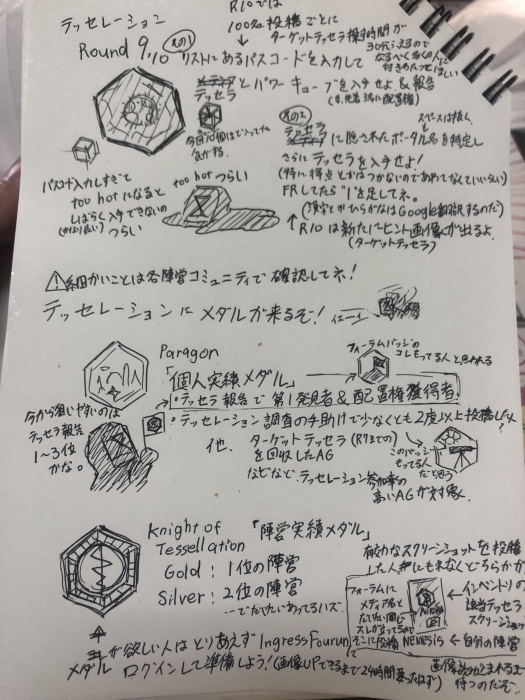 テッセレーション
Round 9,10 その1
R10では
100名投稿ごとに
ターゲットテッセラ探す時間が
30分ふえるので
なるべく多くの人に
付き合ってほしい
リストにあるパスコードを入力して
テッセラ とパワーキューブを入手せよ & 報告
今回10個ほど入ってた
気がする。
パスコード入力しすぎて
too hotになると
しばらく入手できないの
つらい
too hot つらい
その2
スペースは抜く。
テッセラ に隠されたポータル名を特定し
さらにテッセラを入手せよ!
(特に得点とかはつかないのであわてなくていいらしい)
FRしてたら"1"を足してネ。
↑R10は新たにヒント画像が出るよ。
(ターゲットテッセラ)
⚠細かいことは各陣営コミュニティで確認してネ!
テッセレーションにメダルが来るぞ!
Paragon
「個人実績メダル」
フォーラムバッジの
コレもってる人と思われる
・テッセラ報告で第1発見者&配置権獲得者
・テッセレーション調査の手助けで少なくとも2度以上投稿した人
今から狙いやすいのは
テッセラ報告
1〜3位
かな。
他、ターゲットテッセラ(R7までの)
を回収したAG
などなど、テッセレーション参加率の
高いAGが対象。
このバッジ
もってる人
だと思う
Knight of
Tessellation
「陣営実績メダル」
Gold : 1位の陣営
Silver : 2位の陣営
…でだいたいあってるハズ
有効なスクリーンショットを投稿
した人にもれなくどちらかが
フォーラムに
メディア名と
だいたい同じ
スレが立ってるので
そこに投稿
←インベントリの
該当テッセラ
スクリーンショット
NEMESIS ←自分の陣営
メダル が欲しい人はとりあえずIngressFourumに
ログインして準備しよう!(画像UPできるまで24時間要ったはず)
画像読み込まれるまで
待つのだぞ